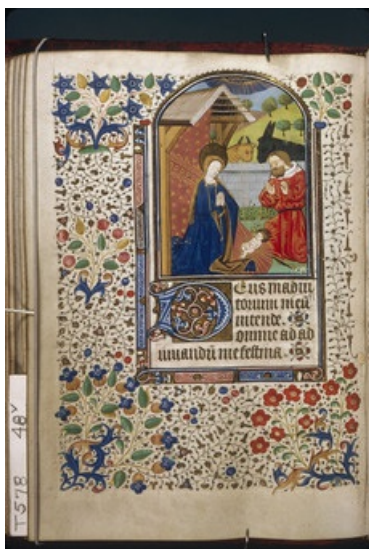 DEus in adiu
torium meū
intende.
omine ad ad
iuuandū me festina.
T578 48v